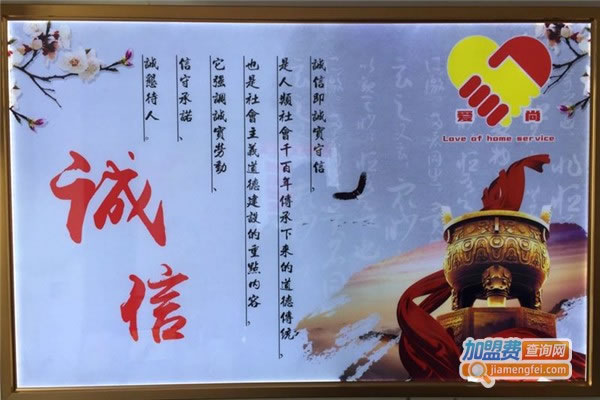 誠信即誠實守信、
是人類社會千百年傳承下來的道德傳統、
也是社會主義道德建設的重點内容、
它強調誠實勞動、
信守承諾、
誠懇待人、
誠信
爱尚
Love of home service
加盟费查询网
jiamengfei.com